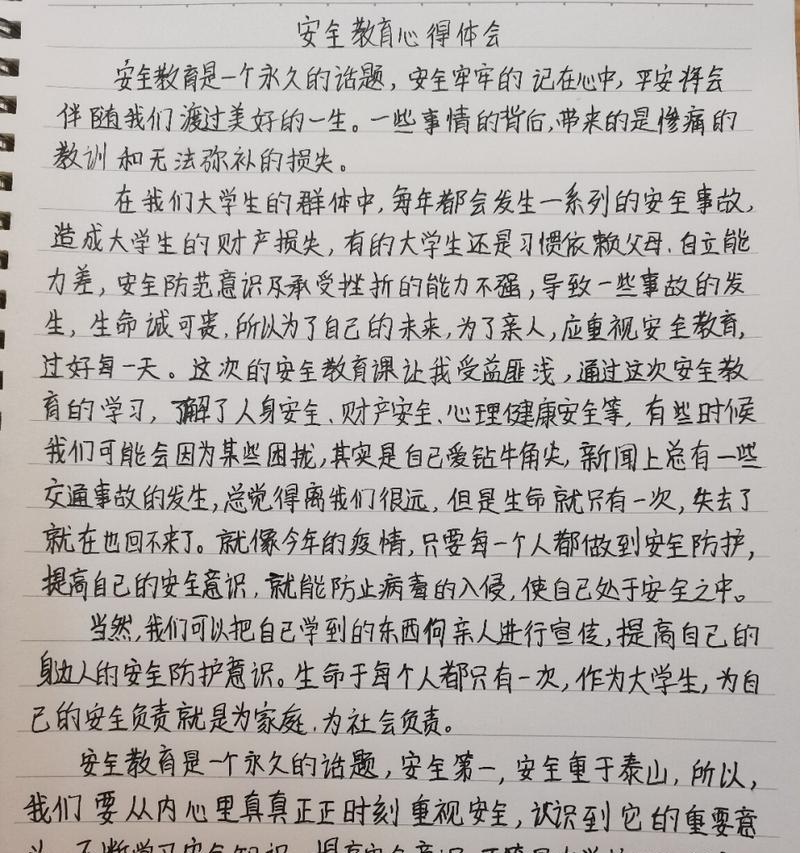 安全教育心得体会
安全教育是一个永久的话题，安全牢牢的记在心中，平安将会
伴随我们渡过美好的一生。一些事情的背后，带来的是惨痛的
教训和无法弥补的损失。
在我们大学生的群体中，每年都会发生一系列的安全事故，
造成大学生的财产损失，有的大学生还是习惯依赖父母、自立能
力差，安全防范意识及承受挫折的能力不强，导致一些事故的发
生，生命诚可贵，所以为了自己的未来，为了亲人，应重视安全教育，
过好每一天。这次的安全教育课让我受益匪浅，通过这次安全教
育的学习，了解了人身安全、财产安全、心理健康安全等，有些时候
我们可能会因为某些困扰，其实是自己爱钻牛角尖，新闻上总有一些
交通事故的发生，总觉得离我们很远，但是生命就只有一次，失去了
就在也回不来了。就像今年的疫情，只要每一个人都做到安全防护，
提高自己的安全意识，就能防止病毒的入侵，使自己处于安全之中。
当然，我们可以把自己学到的东西向亲人进行宣传，提高自己的
身边人的安全防护意识。生命于每个人都只有一次，作为大学生，为自
己的安全负责就是为家庭、为社会负责。
安全教育是一个永久的话题，安全第一，安全重于泰山，所以，
我们要从内心里真真正正时刻重视安全，认识到它的重要意
不断学习安全知识，提高安全意识